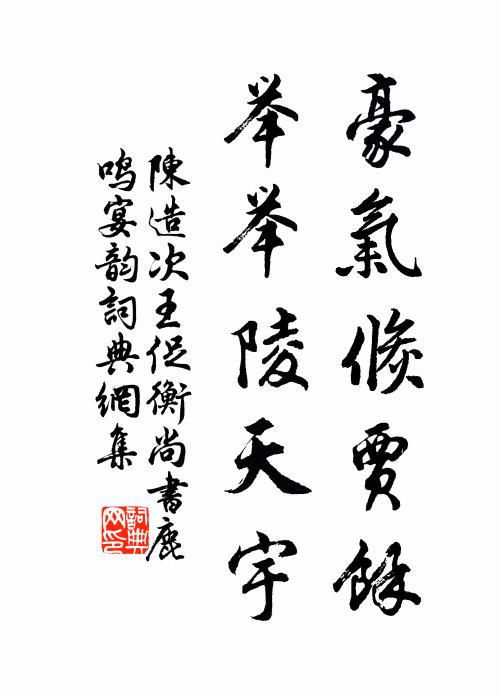 豪氣倐賈餘
举举陵天宇
陳造次王促衡尚書鹿
鳴宴韵詞典網集
詞典
网印